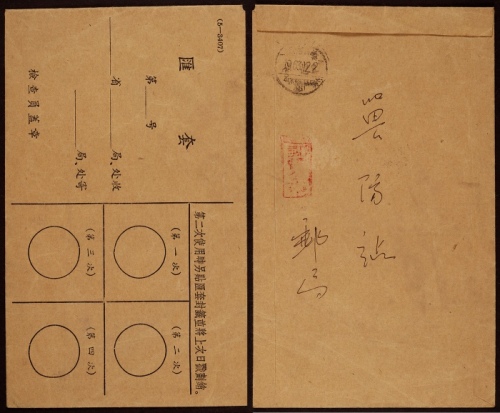 (5—3407)
匯 套
第 号
省 局、处收
局、处寄
檢查員盖章
第二次使用時另貼匯套封籤並將上次日戳劃銷。
(第一次)
(第二次)
(第三次)
(第四次)
防站
郵局